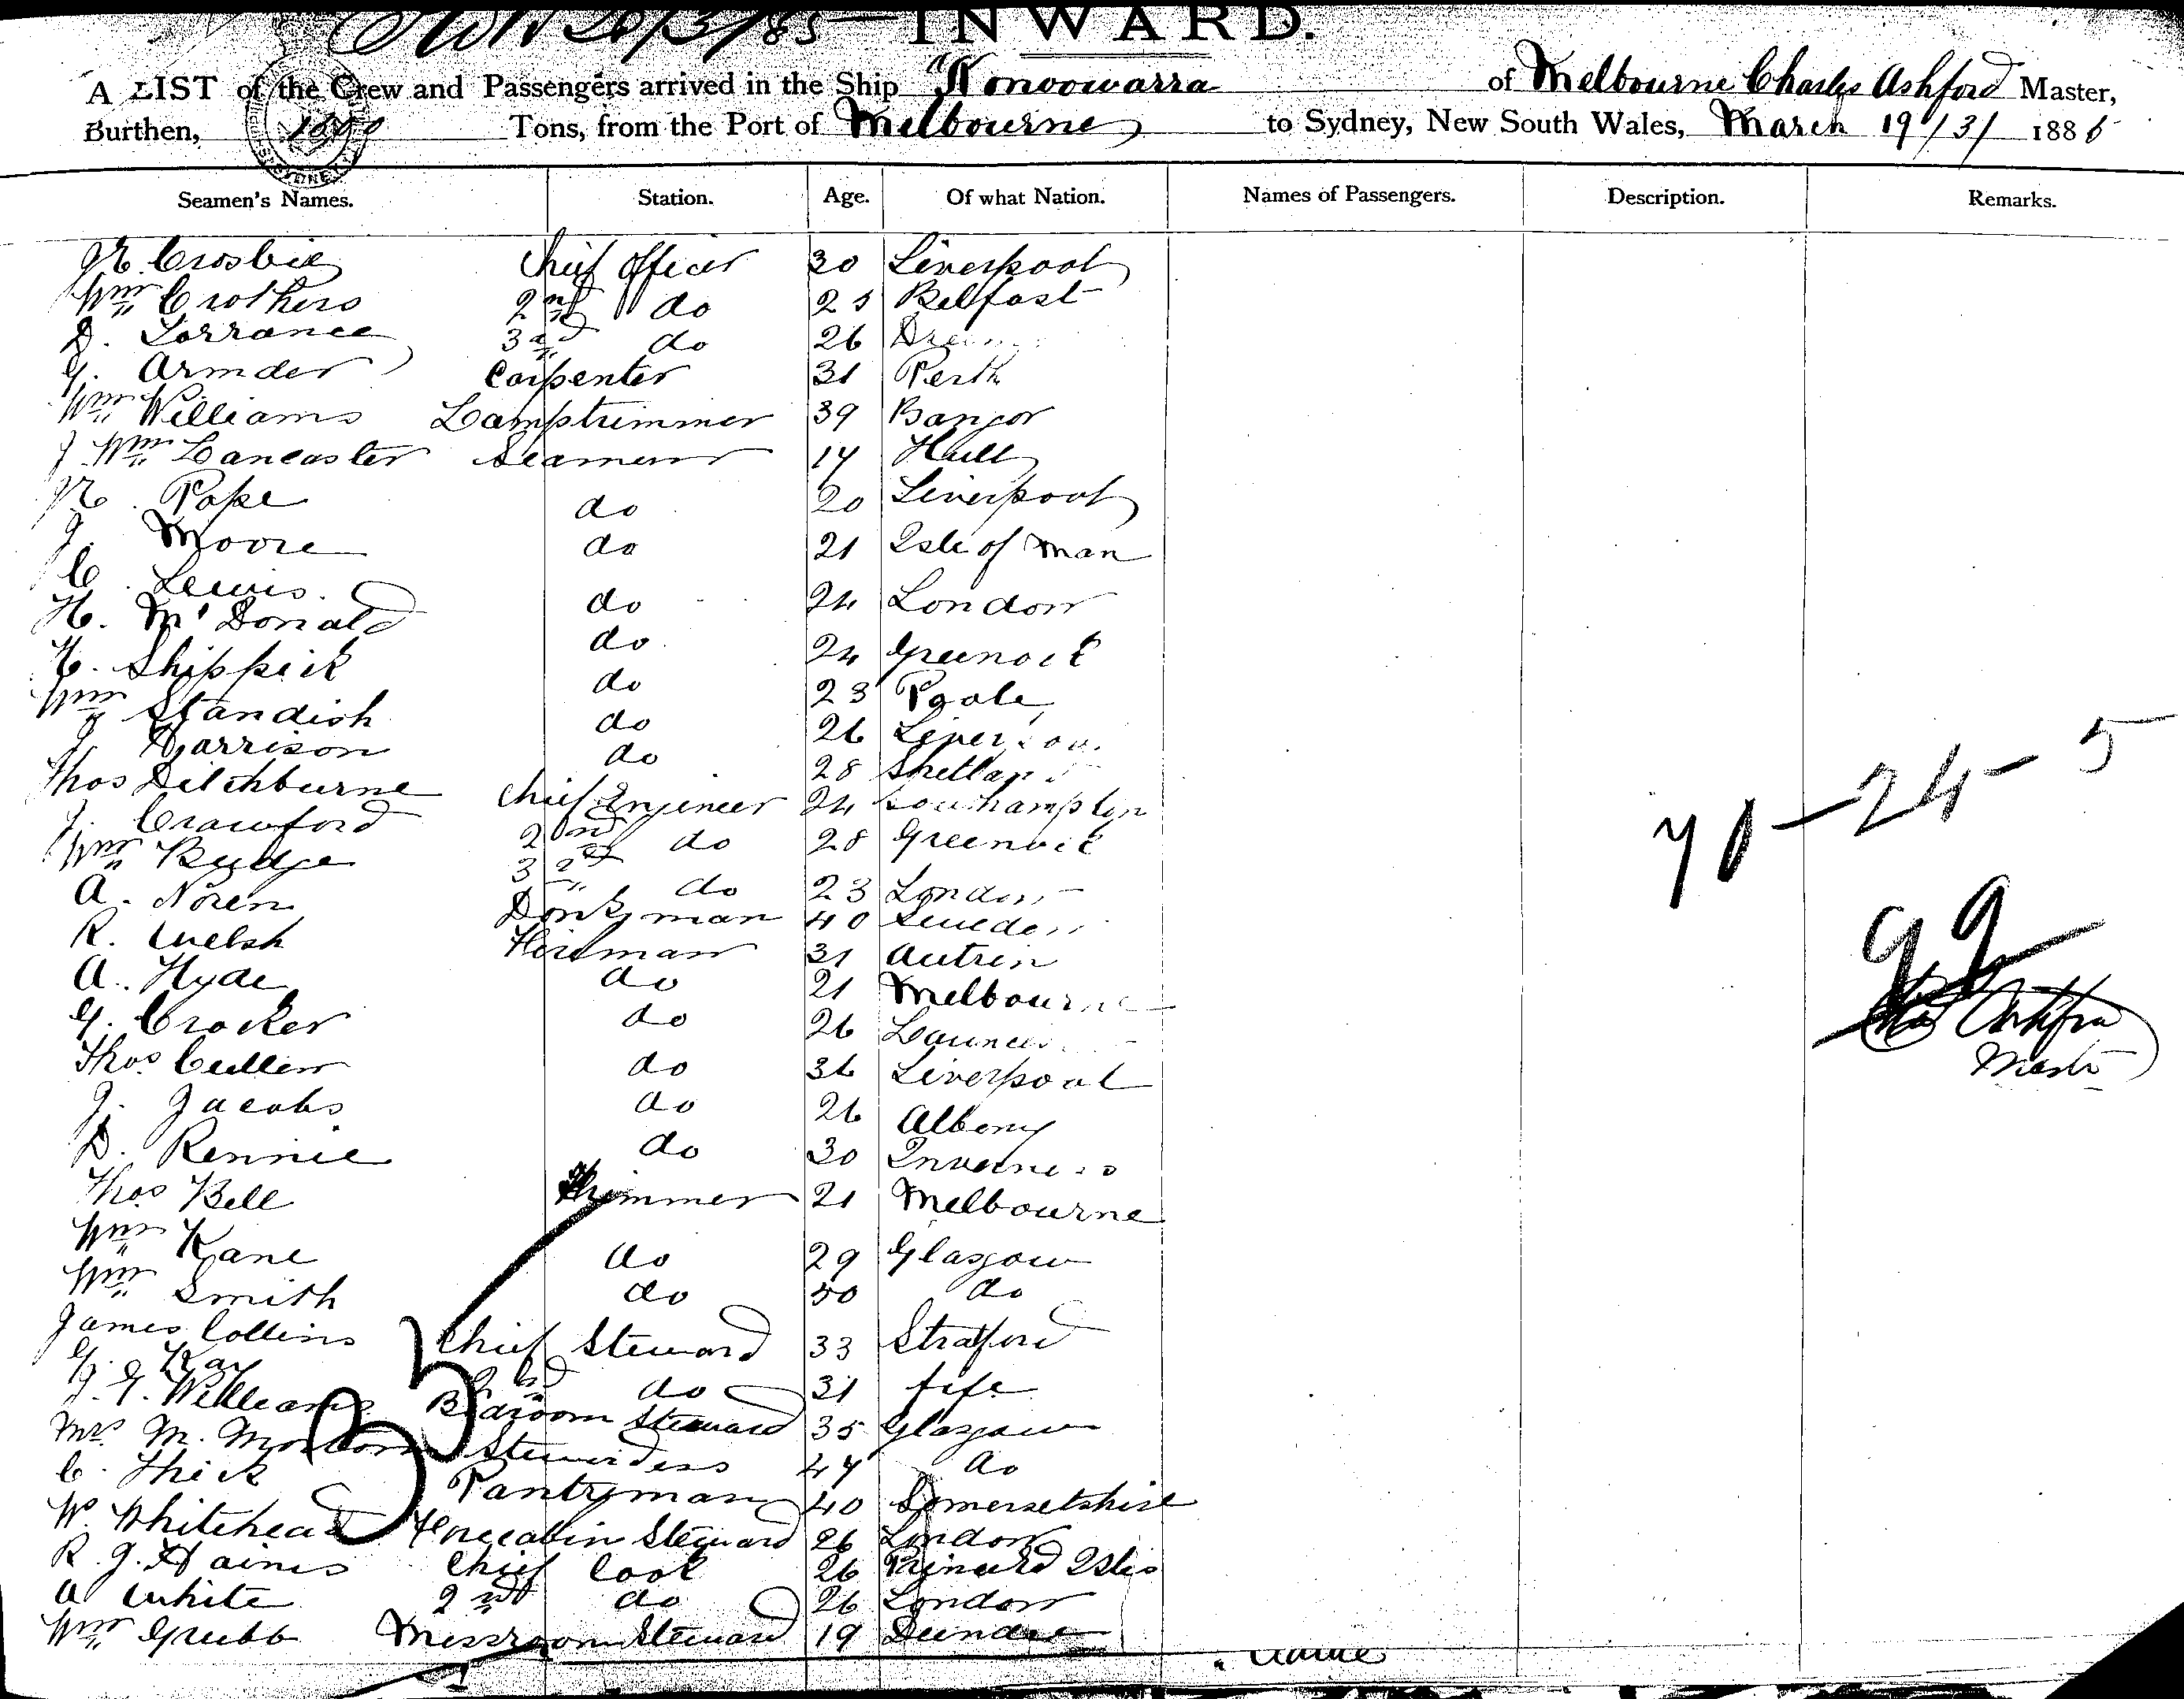 INWARD.
A LIST of the Crew and Passengers arrived in the Ship "Nonoowarra of Melbourne Charles Ashford Master,
Burthen, Tons, from the Port of Melbourne to Sydney, New South Wales, March 19/3/ 1885
Seamen's Names. Station. Age. Of what Nation. Names of Passengers. Description. Remarks.
Crosbie Chief Officer 30 Liverpool
Wm Crothers 2nd do 25 Belfast
D. Torrance 3rd do 26
G. Armder Carpenter 31 Perth
Wm Williams Lamptrimmer 39 Bangor
J Wm Lancaster Seamen 17 Hull
Pope do 20 Liverpool
J. Moore do 21 Isle of Man
C. Lewis. do 24 London
H. McDonald do 24 Greenock
H. Shippick do 23 Poole
Wm Standish do 26
J Harrison do 28 Shetland
Thos Ditchburne Chief Engineer 24 Southampton
J. Crawford 2nd do 28 Greenock
Wm Budge 3rd do 23 London
A. Noren Donkyman 40 Sweden
R. Welsh Fireman 31 Autrin
A. Hyde do 21 Melbourne
G. Crocker do 26
Thos. Cullen do 36 Liverpool
J. Jacobs do 26 Albeny
D. Rennie do 30 Inverness
Thos Bell Trimmer 21 Melbourne
Wm Kane do 29 Glasgow
Wm Smith do 50 do
James Collins Chief Steward 33 Stratford
G. Kay 2nd do 31 fife
J. G. Williams Bedroom Steward 35 Glasgow
Mrs M. Stewardess 47 do
C. Thick Pantryman 40 Somersetshire
W. Whitehead Forecabin Steward 26 London
R. J. Haines Chief Cook 26
A White 2nd do 26 London
Wm Grubb Messroom Steward 19 Dundee
35
71-24-5
99
Ashford
Master